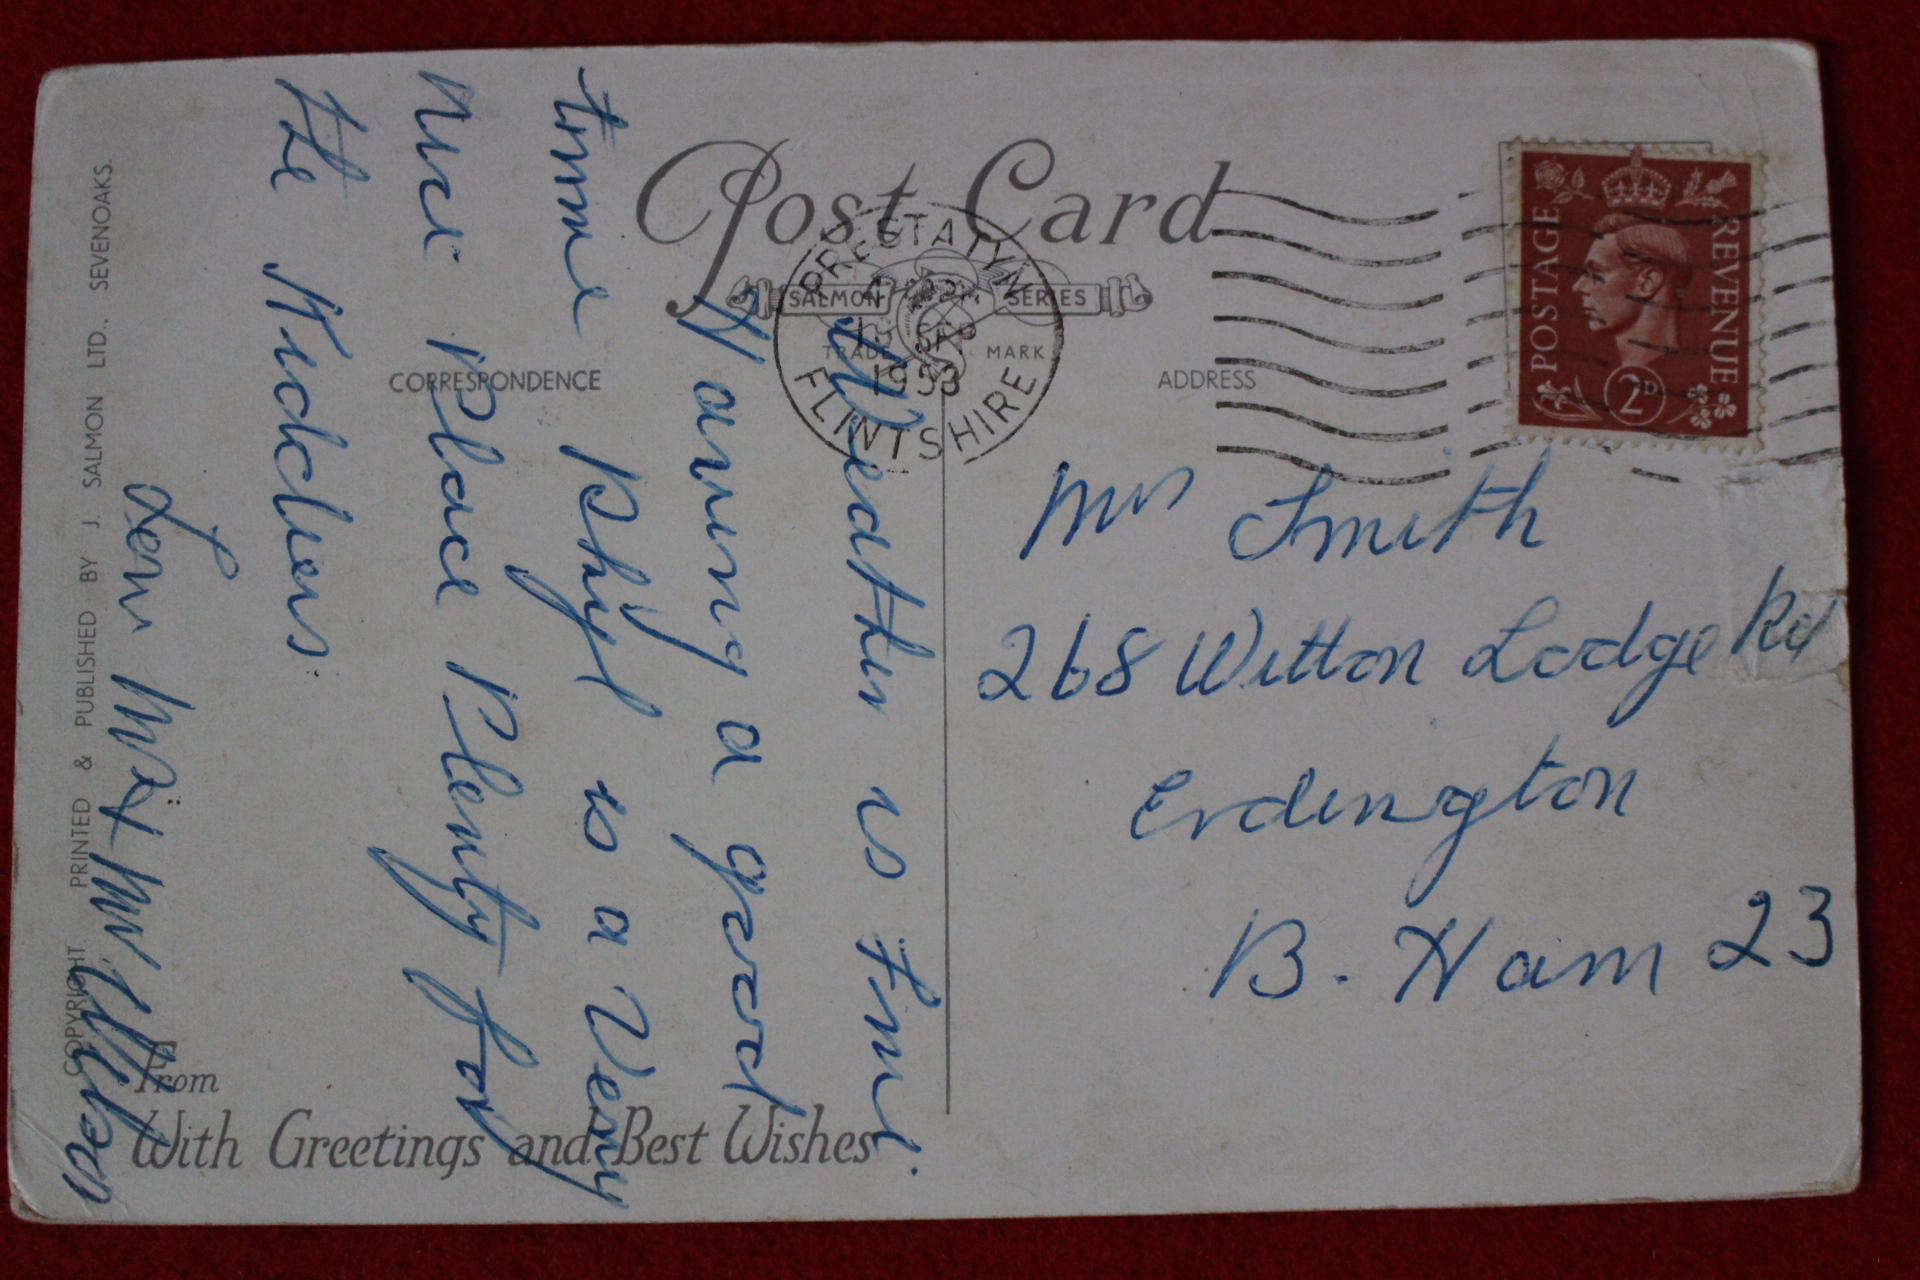 Post Card
SALMON SERIES
TRADE MARK
CORRESPONDENCE
ADDRESS
PRESTATYN
SEP
1953
FLINTSHIRE
POSTAGE REVENUE
2D
Weather is Fine
Having a good
time Rhyl is a Very
Nice Place Plenty for
the Kiddies
Mrs Smith
268 Witton Lodge Rd
Erdington
B. Ham 23
From
With Greetings and Best Wishes
COPYRIGHT PRINTED & PUBLISHED BY J. SALMON LTD., SEVENOAKS.